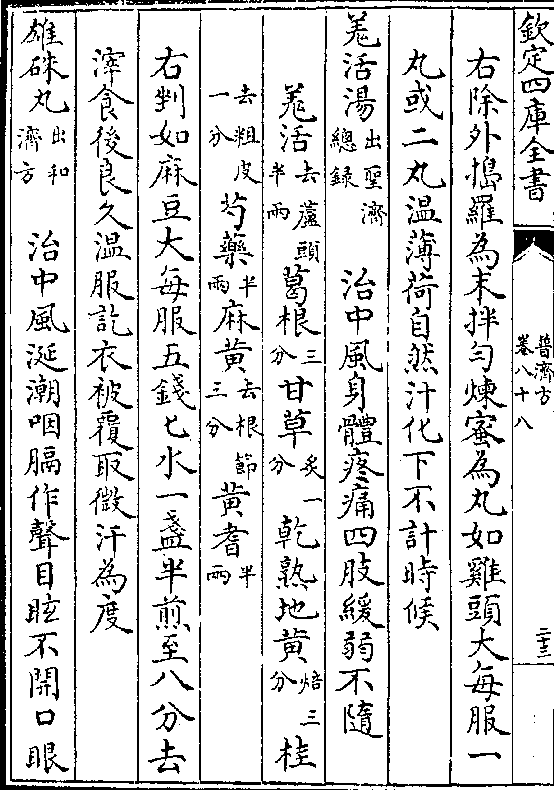 欽定四庫全書
普濟方
卷八十八
二十三
右除外搗羅為末拌勻煉蜜為丸如雞頭大每服一
丸或二丸温薄荷自然汁化下不計時候
羗活湯出聖濟總錄 治中風身體疼痛四肢緩弱不隨
羗活去蘆頭半兩葛根三分甘草炙一分乾熟地黄焙三分桂
去粗皮一分芍藥半兩麻黄去根節三分黄耆半兩
右剉如麻豆大每服五錢匕水一盞半煎至八分去
滓食後良久温服訖衣被覆取微汗為度
雄硃丸出和濟方 治中風涎潮咽膈作聲目眩不開口眼